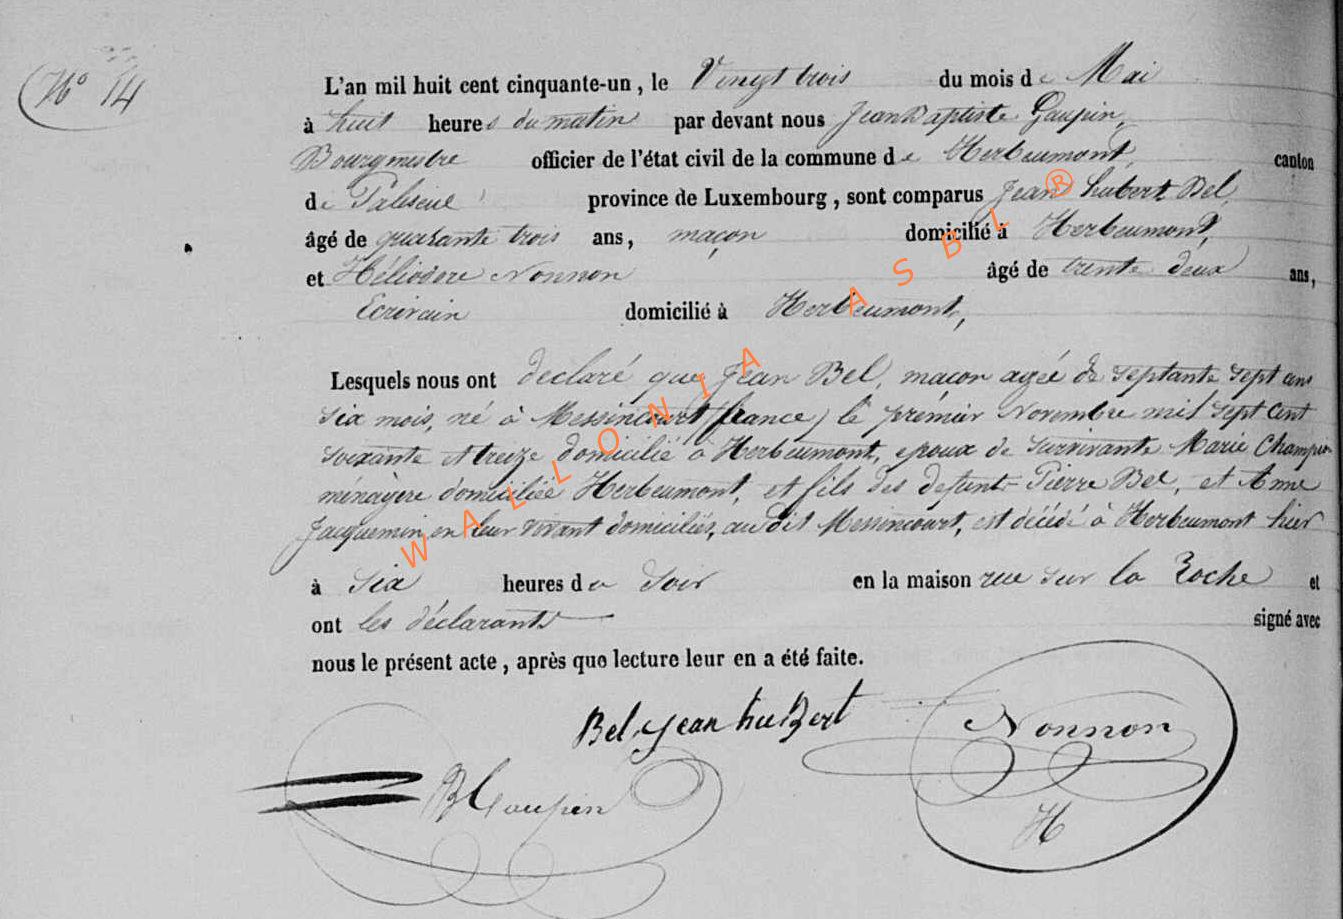 N° 14
L'an mil huit cent cinquante-un, le Vingt trois du mois de Mai
à huit heures du matin par devant nous Jean Baptiste Gaupin,
Bourgmestre officier de l'état civil de la commune de Herbeumont, canton
de Paliseul province de Luxembourg, sont comparus Jean hubert Bel,
âgé de quarante trois ans, maçon domicilié à Herbeumont,
et Héliodore Nonnon âgé de trente deux ans,
Ecrivain domicilié à Herbeumont,
Lesquels nous ont declaré que Jean Bel, maçon agée de septante sept ans
six mois, né à Messincourt (france) le premier Novembre mil sept cent
soixante et treize domicilié à Herbeumont, epoux de survivante Marie Champion
ménagère domiciliée Herbeumont, et fils des defunt Pierre Bel, et Anne
Jacquemin en leur vivant domiciliés, au dit Messincourt, est décédé à Herbeumont hier
à six heures du soir en la maison rue sur la Roche et
ont les déclarants signé avec
nous le présent acte, après que lecture leur en a été faite.
Bel Jean huBert
Nonnon
H
JB Gaupin
WALLONIA ASBL ®